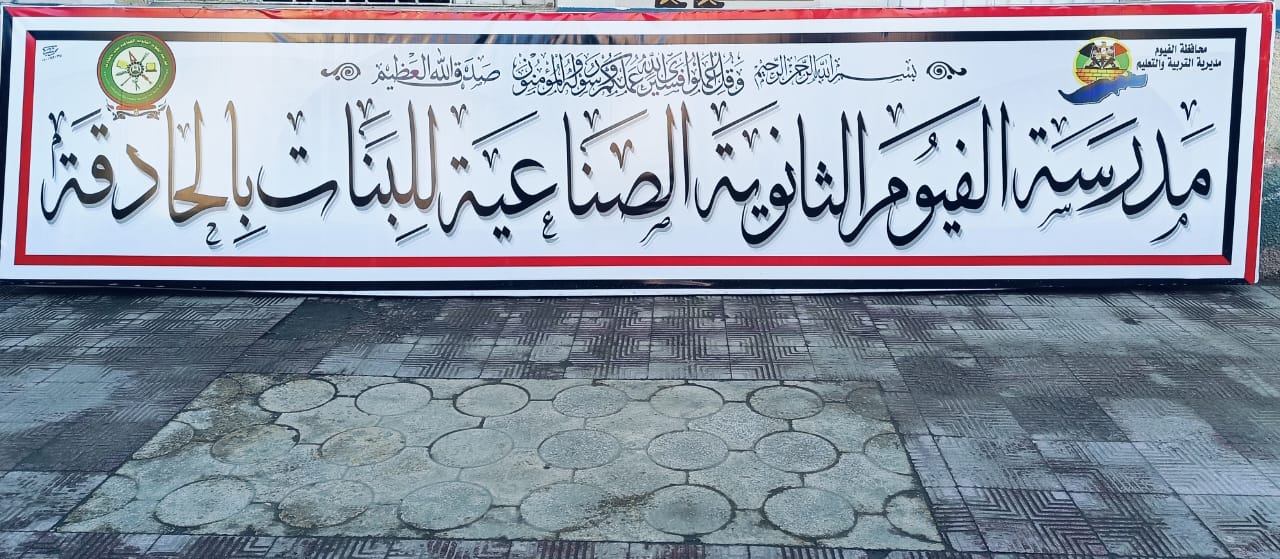 محافظة الفيوم
مديرية التربية والتعليم
بسم الله الرحمن الرحيم وقل اعملوا فسيرى الله عملكم ورسوله والمؤمنون صدق الله العظيم
مدرسة الفيوم الثانوية الصناعية للبنات بالحادقة